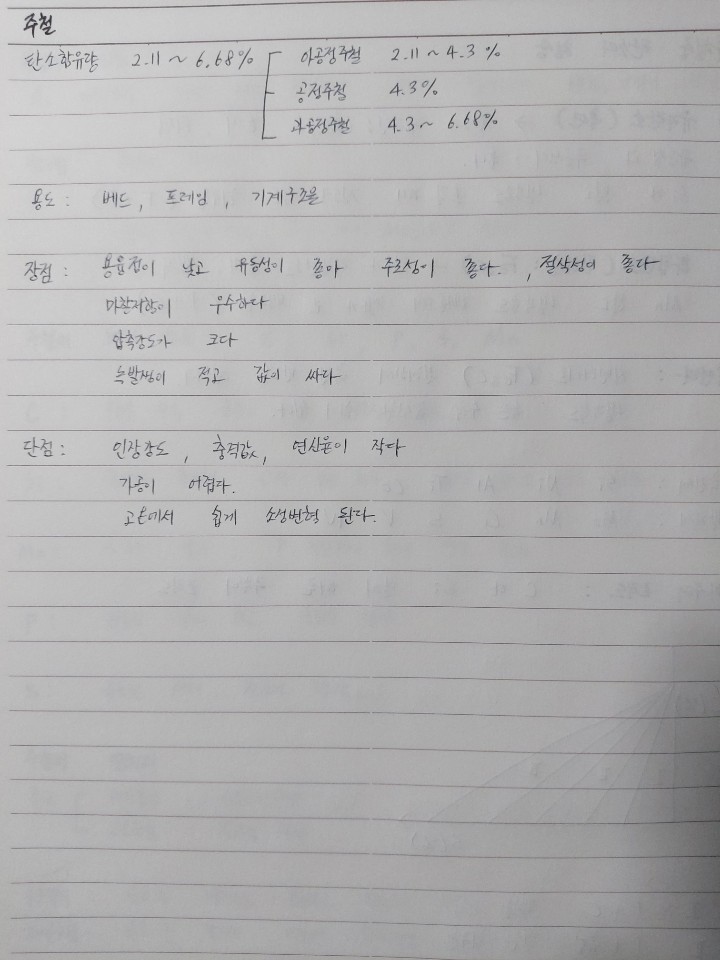 주철
탄소함유량 2.11 ~ 6.68% 아공정주철 2.11 ~ 4.3 %
공정주철 4.3%
과공정주철 4.3 ~ 6.68%
용도 : 베드, 프레임, 기계구조물
장점 : 용융점이 낮고 유동성이 좋아 주조성이 좋다. , 절삭성이 좋다
마찬저항이 우수하다
압축강도가 크다
녹발생이 적고 값이 싸다
단점 : 인장강도, 충격값, 연신율이 작다
가공이 어렵다.
고온에서 쉽게 소성변형 된다.